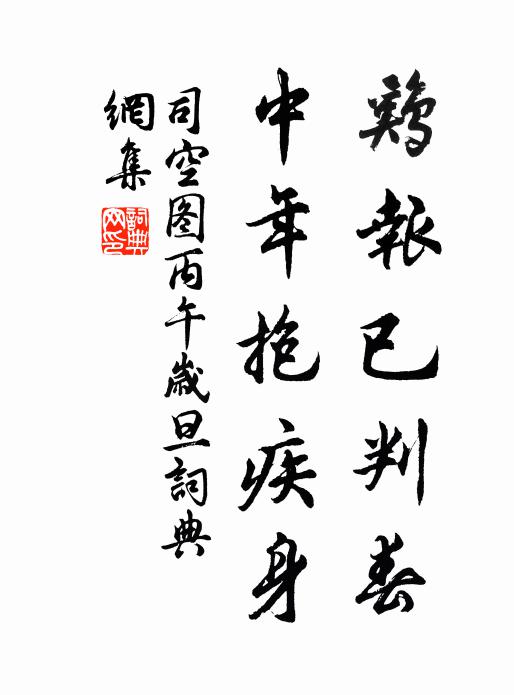 鷄報已判春
中年抱疾身
司空图丙午歲旦詞典
網集
詞典
网印